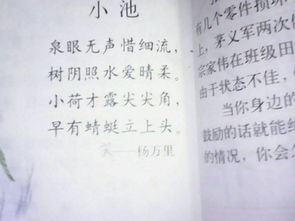 小池
泉眼无声惜细流，
树阴照水爱晴柔。
小荷才露尖尖角，
早有蜻蜓立上头。
——杨万里
有几个零件损坏
上，茅义军两次
宗家伟在班级田
由于状态不佳，
当你身边的
鼓励的话就能给
的情况，你会怎